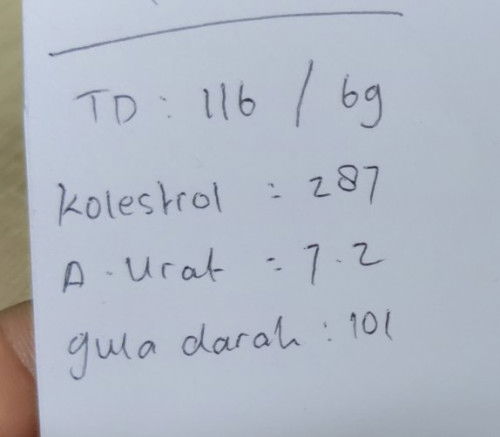 TD : 116 / 69
kolestrol : 287
A. Urat = 7.2
gula darah : 101